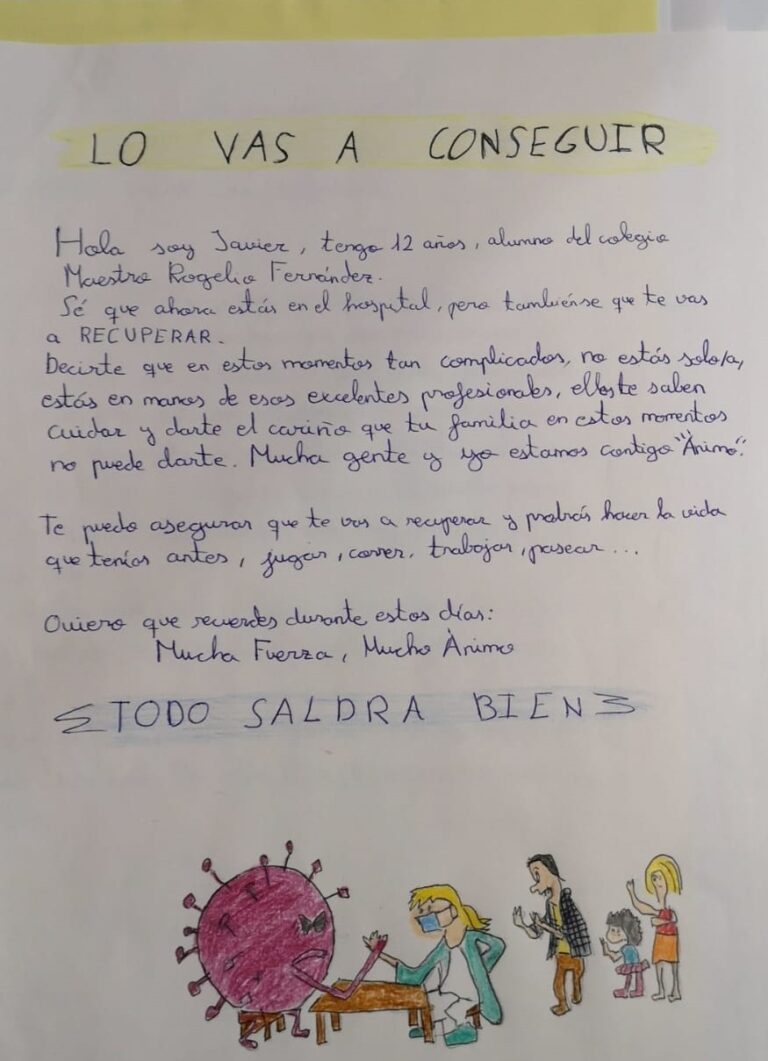 LO VAS A CONSEGUIR
Hola soy Javier, tengo 12 años, alumno del colegio
Maestro Rogelio Fernández.
Sé que ahora estás en el hospital, pero tambiénse que te vas
a RECUPERAR.
Decirte que en estos momentos tan complicados, no estás solo/a,
estás en manos de esos excelentes profesionales, ellos te saben
cuidar y darte el cariño que tu familia en estos momentos
no puede darte. Mucha gente y yo estamos contigo "Ànimo".
Te puedo asegurar que te vas a recuperar y podrás hacer la vida
que tenías antes, jugar, correr, trabajar, pasear...
Quiero que recuerdes durante estos días:
Mucha Fuerza, Mucho Ànimo
TODO SALDRA BIEN